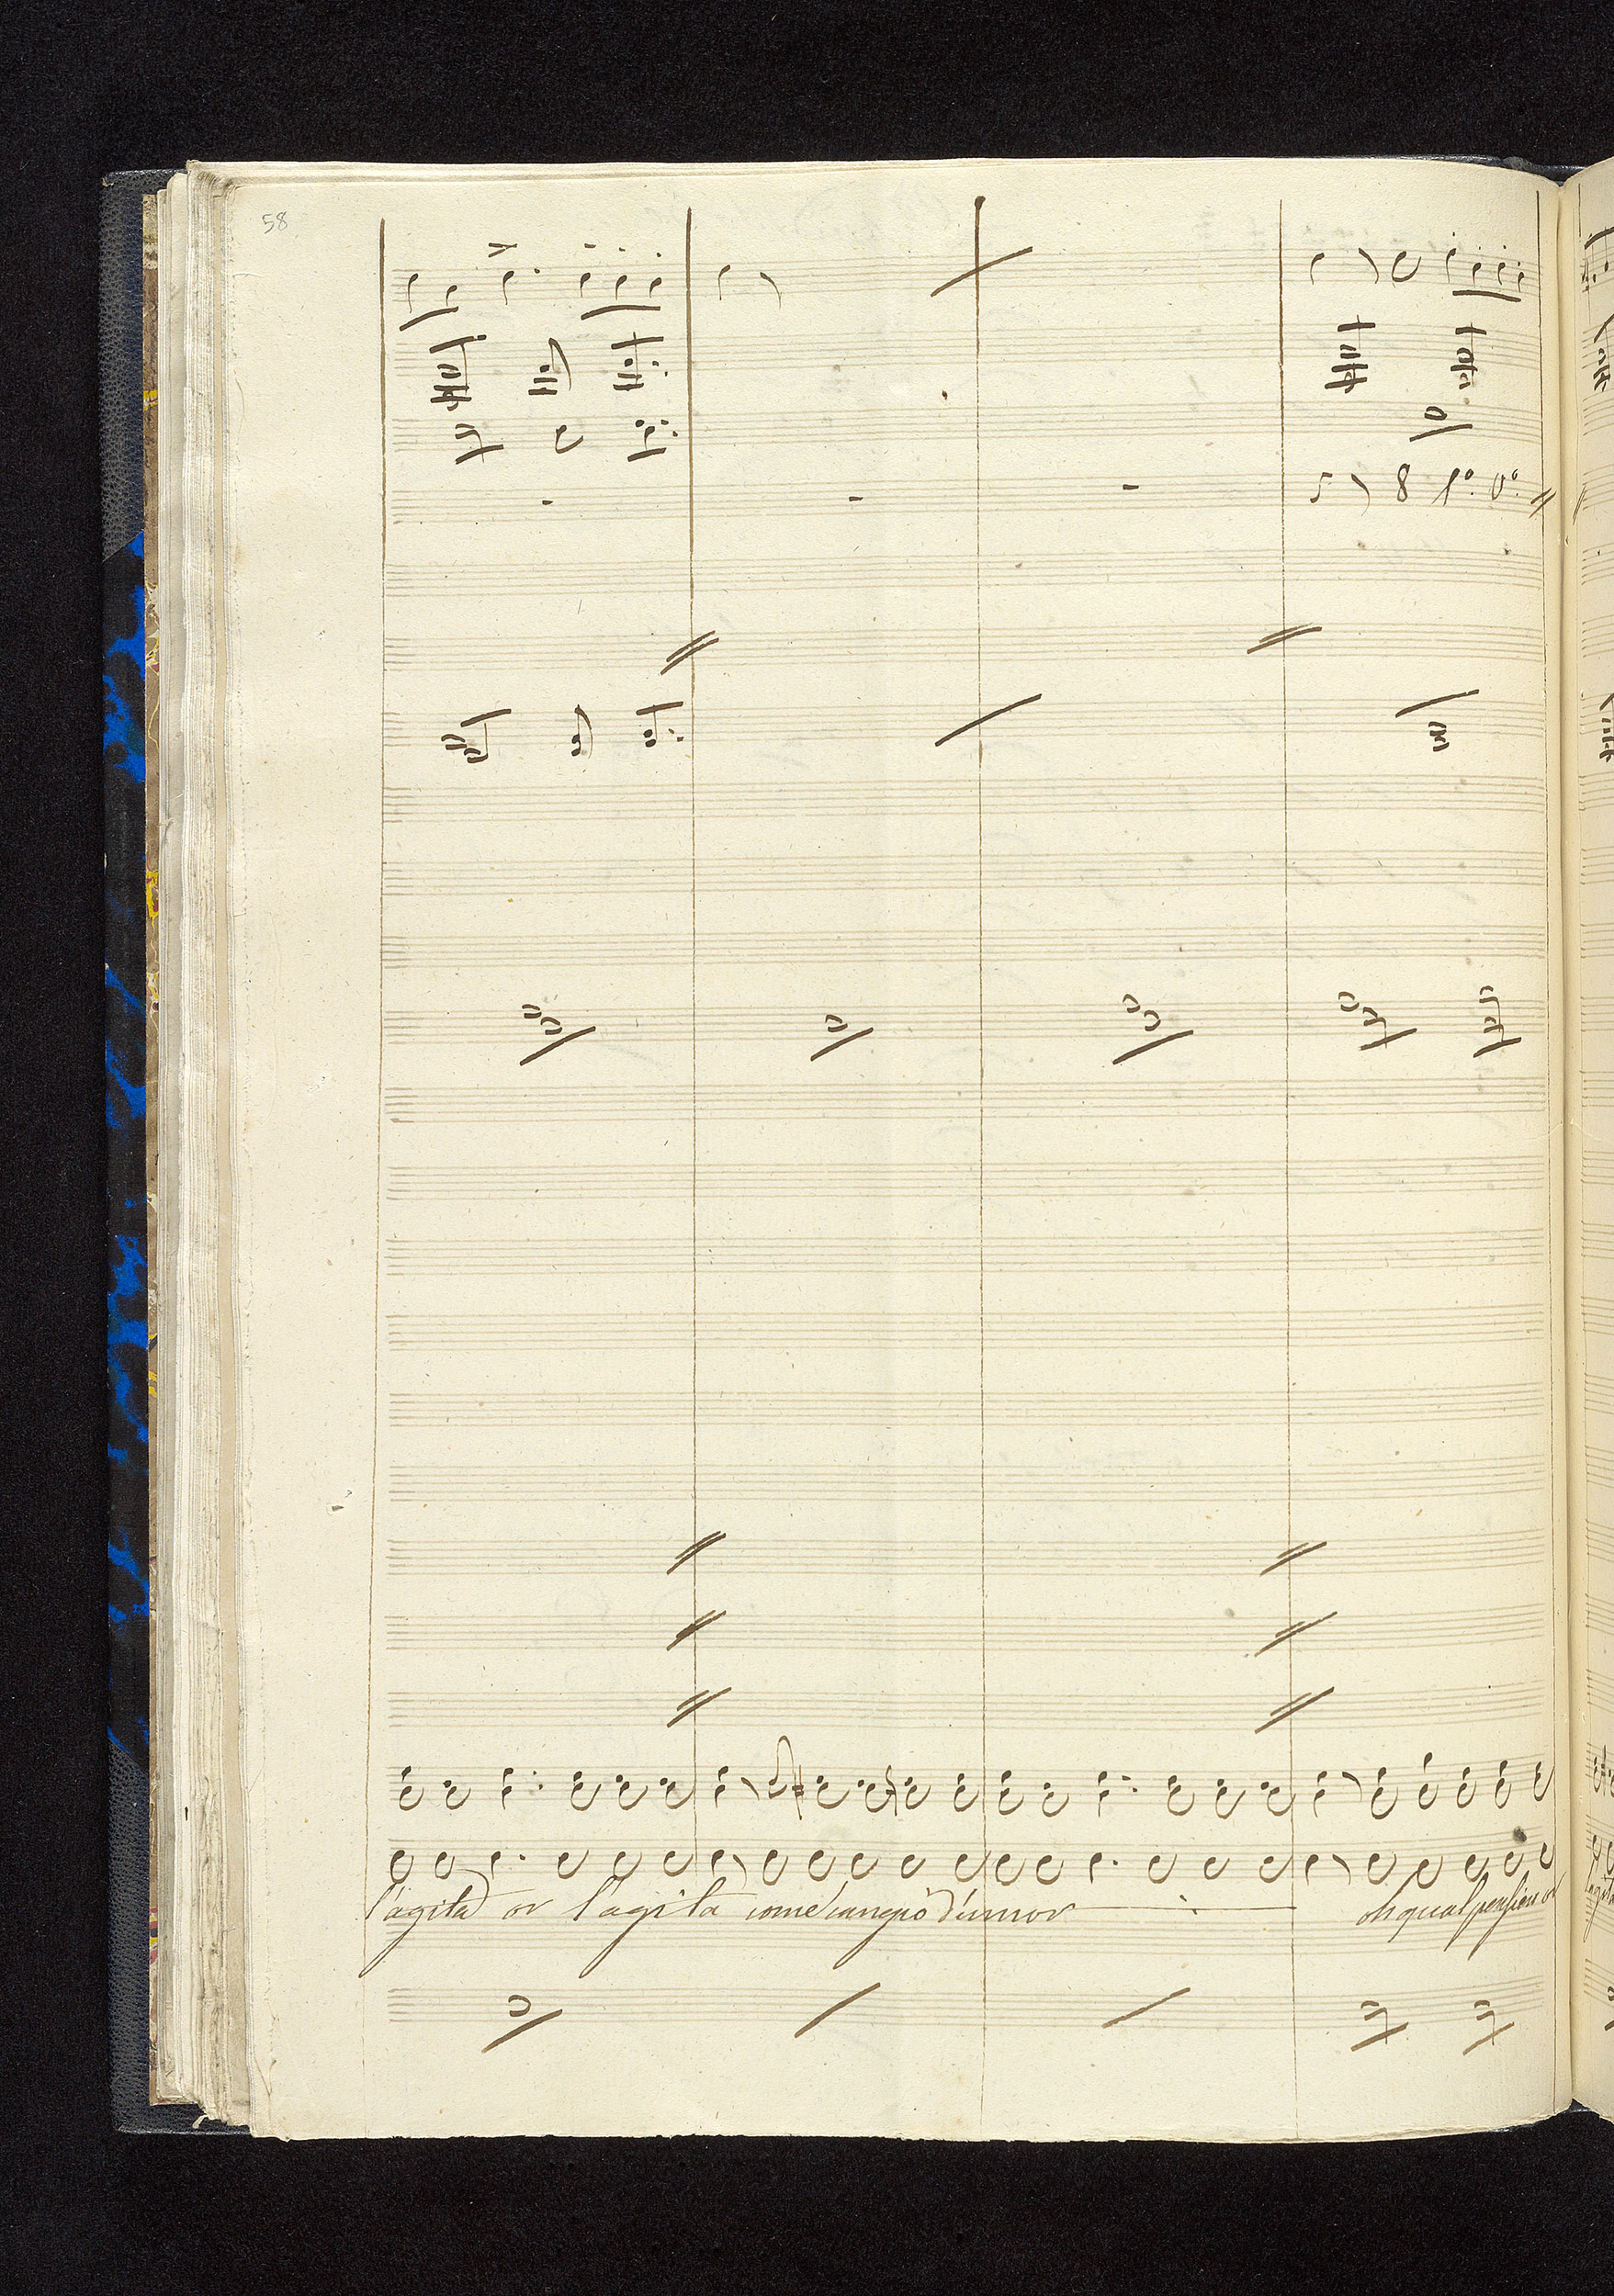 58
8 1º. Vº.
l'agita or l'agita come cangiò d'umor oh qual pensier or